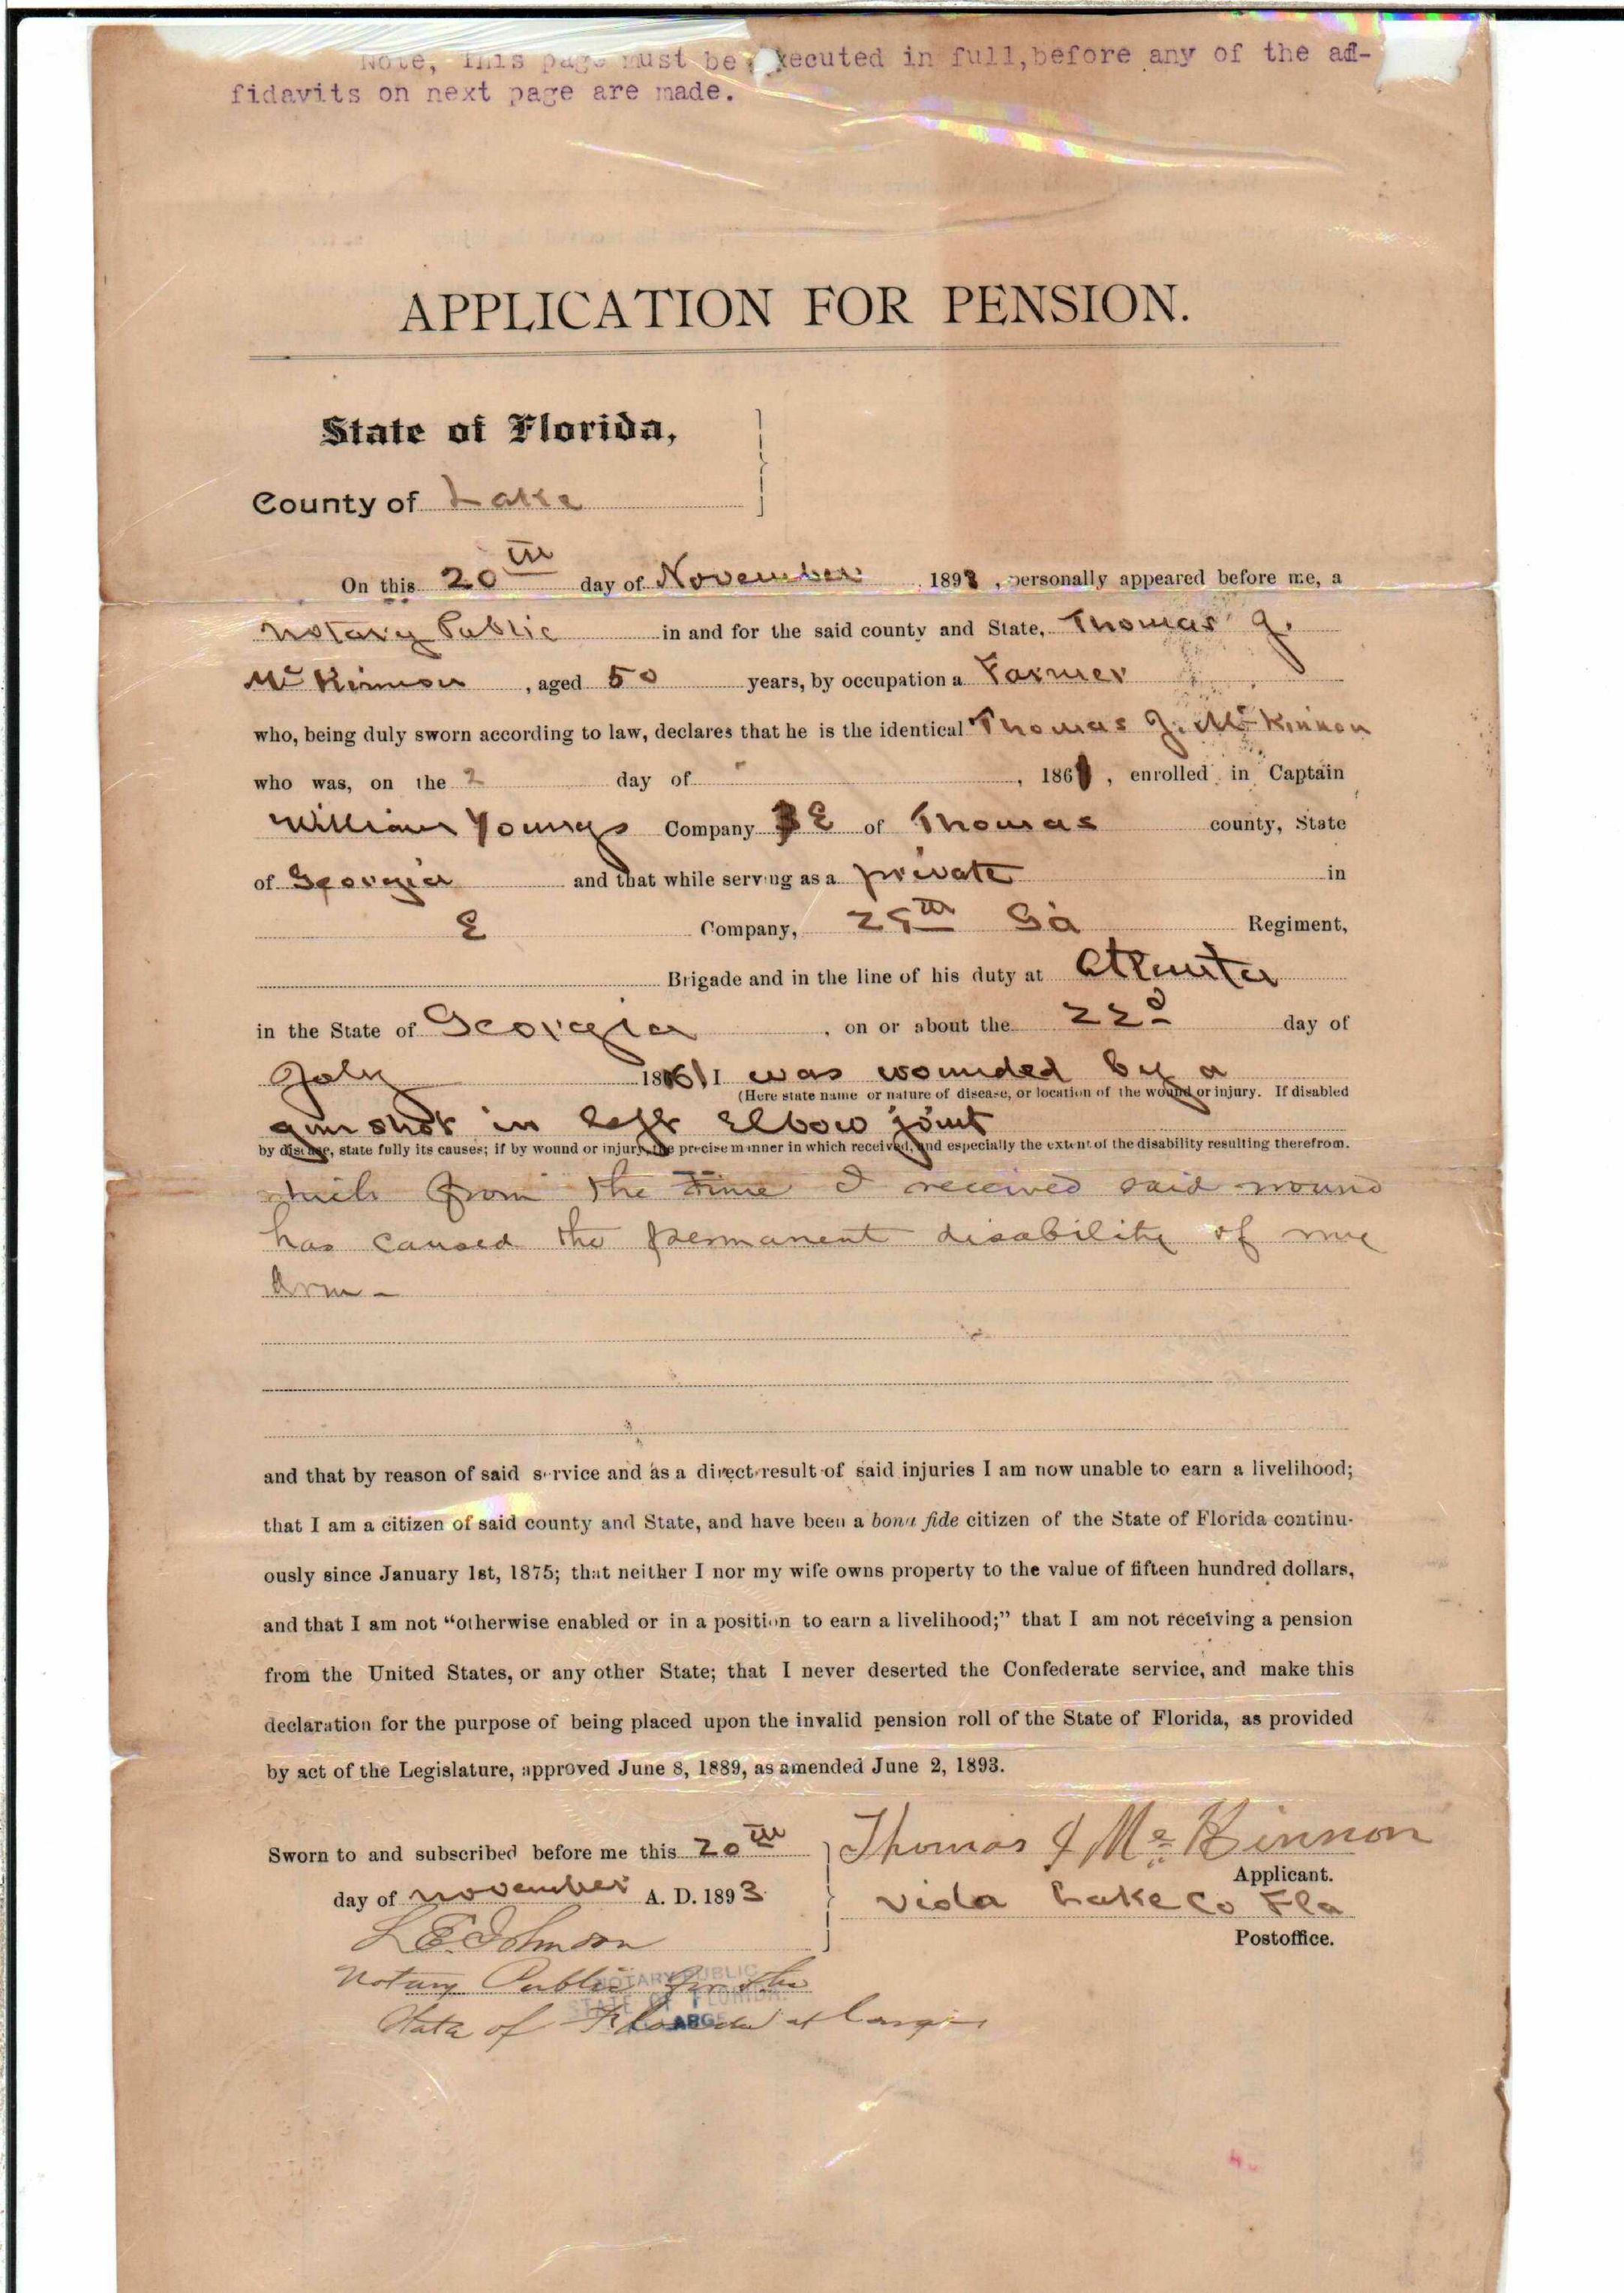 Note, This page must be executed in full, before any of the af-
fidavits on next page are made.
APPLICATION FOR PENSION.
State of Florida,
County of Lake
On this 20th day of November 1893, personally appeared before me, a
Notary Public in and for the said county and State, Thomas J.
McKinnon, aged 50 years, by occupation a Farmer
who, being duly sworn according to law, declares that he is the identical Thomas J. McKinnon
who was, on the 2 day of , 1861, enrolled in Captain
William Youngs Company E of Thomas county, State
of Georgia and that while serving as a private in
E Company, 29th Ga Regiment,
Brigade and in the line of his duty at Atlanta
in the State of Georgia, on or about the 22d day of
July I was wounded by a
(Here state name or nature of disease, or location of the wound or injury. If disabled
gun shot in left Elbow joint
by disease, state fully its causes; if by wound or injury, the precise manner in which received, and especially the extent of the disability resulting therefrom.
which from the time I received said wound
has caused the permanent disability of my
Arm -
and that by reason of said service and as a direct result of said injuries I am now unable to earn a livelihood;
that I am a citizen of said county and State, and have been a bona fide citizen of the State of Florida continu-
ously since January 1st, 1875; that neither I nor my wife owns property to the value of fifteen hundred dollars,
and that I am not "otherwise enabled or in a position to earn a livelihood;" that I am not receiving a pension
from the United States, or any other State; that I never deserted the Confederate service, and make this
declaration for the purpose of being placed upon the invalid pension roll of the State of Florida, as provided
by act of the Legislature, approved June 8, 1889, as amended June 2, 1893.
Sworn to and subscribed before me this 20th Thomas J McKinnon
Applicant.
day of November A. D. 1893 Vida Lake Co Fla
L E. Johnson Postoffice.
Notary Public for the
State of Florida at large
NOTARY PUBLIC
STATE OF FLORIDA
LARGE